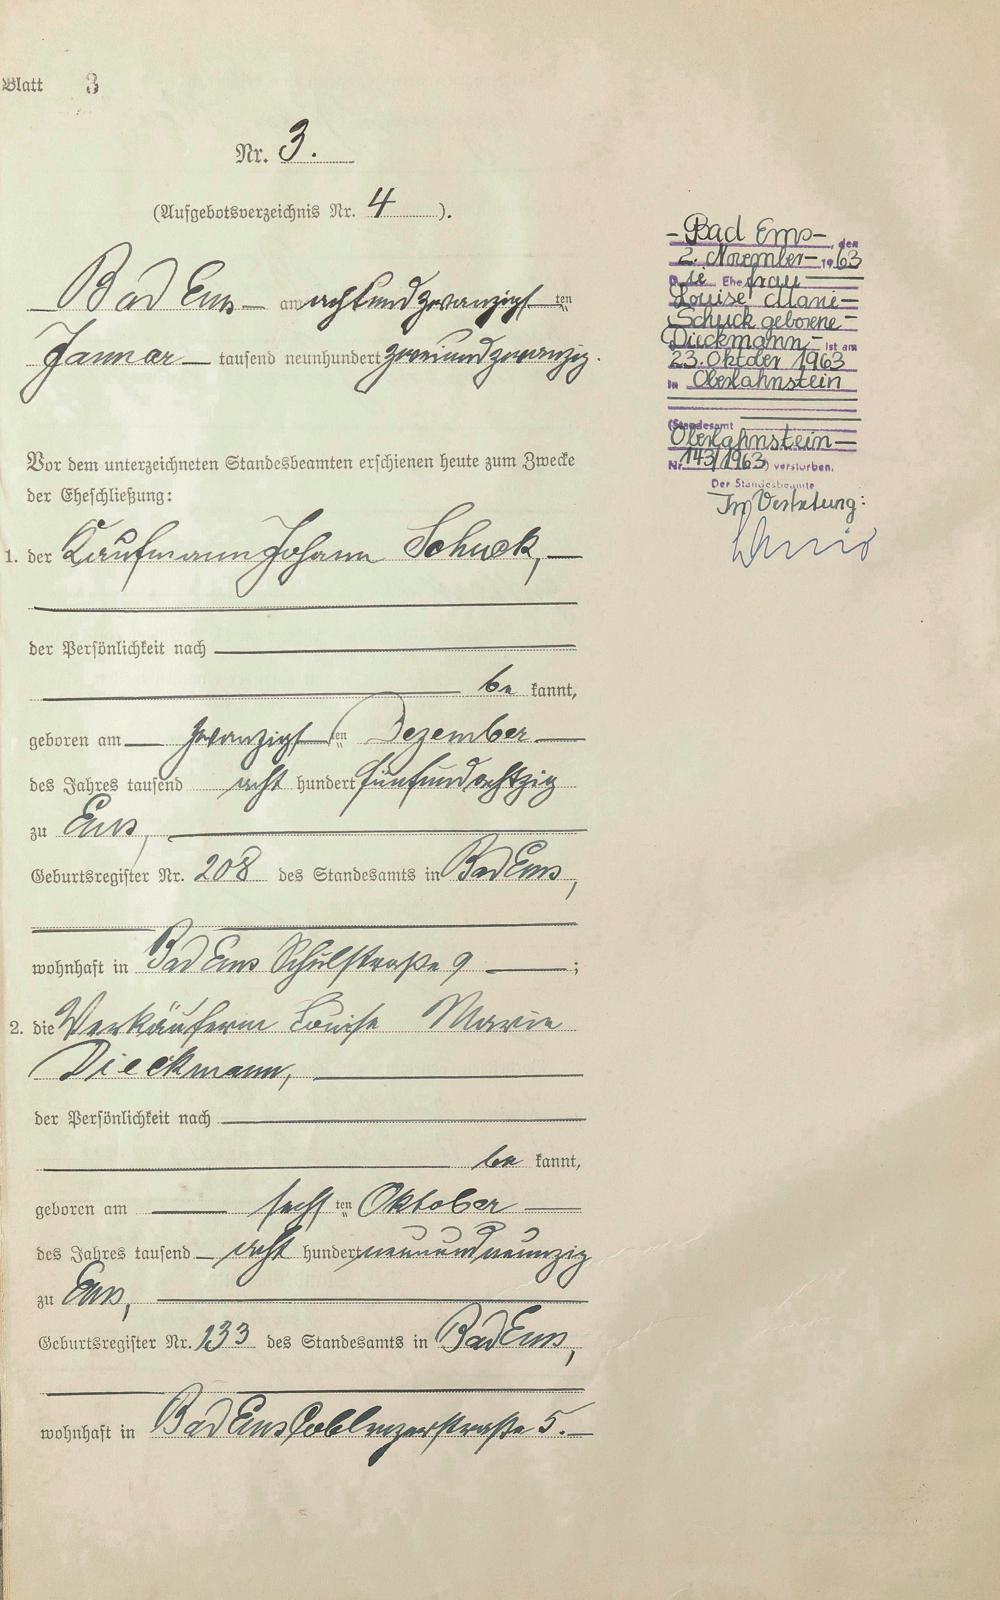 Blatt 3
Nr. 3.
(Aufgebotsverzeichnis Nr. 4 ).
Bad Ems am achtundzwanzigsten
Januar tausend neunhundert zweiundzwanzig.
Vor dem unterzeichneten Standesbeamten erschienen heute zum Zwecke
der Eheschließung:
1. der Kaufmann Johann Schuck,
der Persönlichkeit nach
be kannt,
geboren am zwanzigsten Dezember
des Jahres tausend acht hundert fünfundachtzig
zu Ems,
Geburtsregister Nr. 208 des Standesamts in Bad Ems,
wohnhaft in Bad Ems Schulstraße 9 ;
2. die Verkäuferin Louise Marie
Dieckmann,
der Persönlichkeit nach
be kannt,
geboren am sechsten Oktober
des Jahres tausend acht hundert neunundneunzig
zu Ems,
Geburtsregister Nr. 133 des Standesamts in Bad Ems,
wohnhaft in Bad Ems Coblenzerstraße 5.
-Bad Ems-, den
2. November- 1963
Die Ehefrau
Louise Marie-
Schuck geborene-
Dieckmann- ist am
23. Oktober 1963
in Oberlahnstein
(Standesamt
Oberlahnstein-
Nr. 143/1963) verstorben.
Der Standesbeamte
In Vertretung: